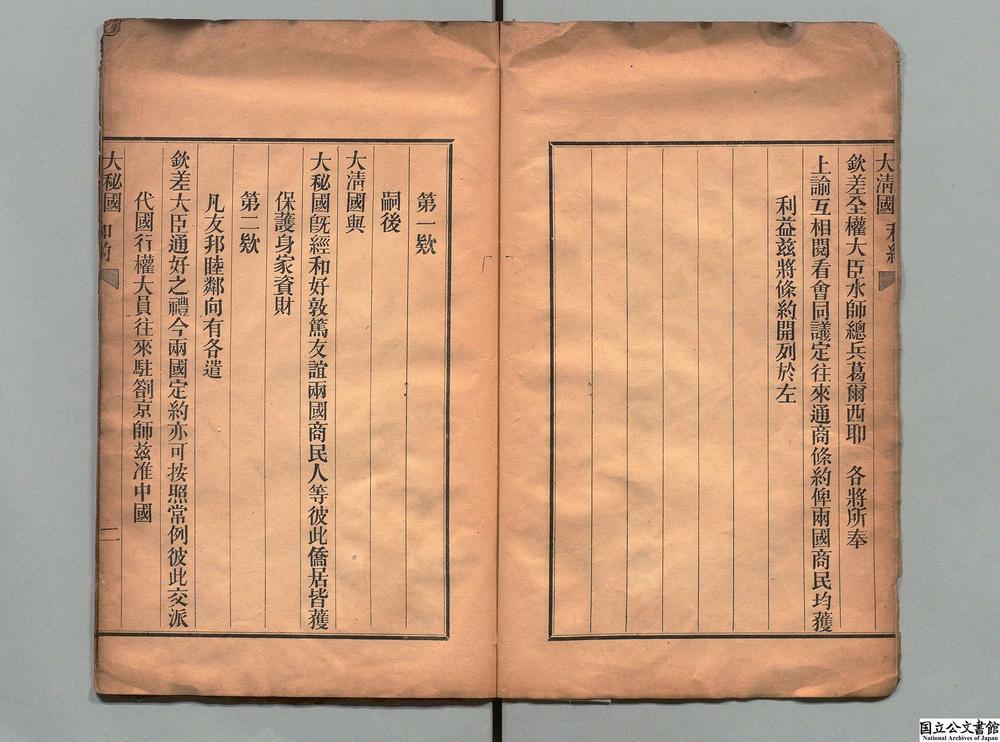 大淸國 和約
欽差全權大臣水師總兵葛爾西耶 各將所奉
上諭互相閱看會同議定往來通商條約俾兩國商民均獲
利益茲將條約開列於左
第一欵
嗣後
大淸國與
大秘國旣經和好敦篤友誼兩國商民人等彼此僑居皆獲
保護身家資財
第二欵
凡友邦睦鄰向有各遣
欽差大臣通好之禮今兩國定約亦可按照常例彼此交派
代國行權大員往來駐劄京師茲准中國
大秘國 和約
二
国立公文書館
National Archives of Japan